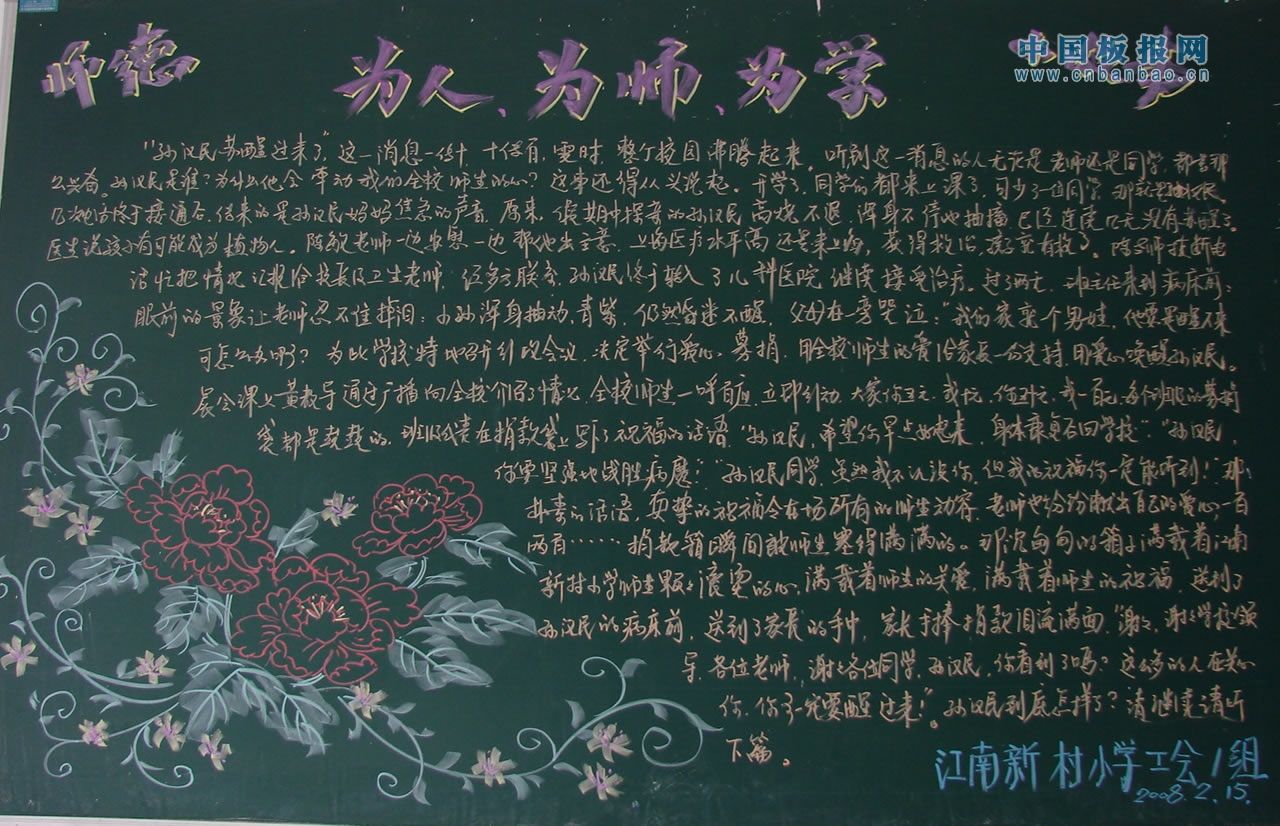 师德 为人、为师、为学
中国板报网
www.cnbanbao.cn
"孙汉民苏醒过来了"，这一消息一传十，十传百，霎时，整个校园沸腾起来。听到这一消息的人无论是老师还是同学，都
么兴奋。孙汉民是谁？为什么他会牵动我们全校师生的心？这事还得从头说起。开学了，同学们都来上课了，可少了一位同学，那就是孙汉民
几次电话终于接通后，传来的是孙汉民妈妈焦急的声音。原来，假期中探亲的孙汉民高烧不退，浑身不停地抽搐，已经连续几天没有苏醒了。
医生说孩子有可能成为植物人。陈敏老师一边安慰一边帮他出主意，上海医疗水平高，还是来上海，获得救治，孩子定有救了。陈老师挂断电
话忙把情况汇报给校长及卫生老师，经多方联系，孙汉民终于转入了儿科医院继续接受治疗。过了两天，班主任来到病床前：
眼前的景象让老师忍不住掉泪：小孙浑身抽动、青紫，仍然昏迷不醒，父母在一旁哭泣："我们家就这个男娃，他要是醒不来
可怎么办啊？为此学校特地召开行政会议，决定举行爱心募捐，用全校师生的爱给家长一份支持，用爱心唤醒孙汉民。
晨会课上黄教导通过广播向全校介绍了情况，全校师生一呼百应，立即行动，大家你五元，我十元，你二十元，我一百元，每个班级的募捐
袋都是鼓鼓的，班级代表在捐款袋上写下了祝福的话语："孙汉民，希望你早点好起来，身体康复后回学校"。"孙汉民，
你要坚强地战胜病魔！""孙汉民同学，虽然我不认识你，但我的祝福你一定能听到！"那
朴素的话语，真挚的祝福令在场所有的师生动容。老师也纷纷献出自己的爱心，一百
两百……捐款箱瞬间被师生塞得满满的。那沉甸甸的箱子满载着江南
新村小学师生颗颗滚烫的心，满载着师生的关爱，满载着师生的祝福，送到了
孙汉民的病床前，送到了家长的手中，家长手捧捐款泪流满面："谢谢，谢谢学校领
导、各位老师，谢谢各位同学，孙汉民，你看到了吗？这么多的人在关心
你，你一定要醒过来！"。孙汉民到底怎样了？请继续请听
下篇。
江南新村小学工会1组
2008.2.15.